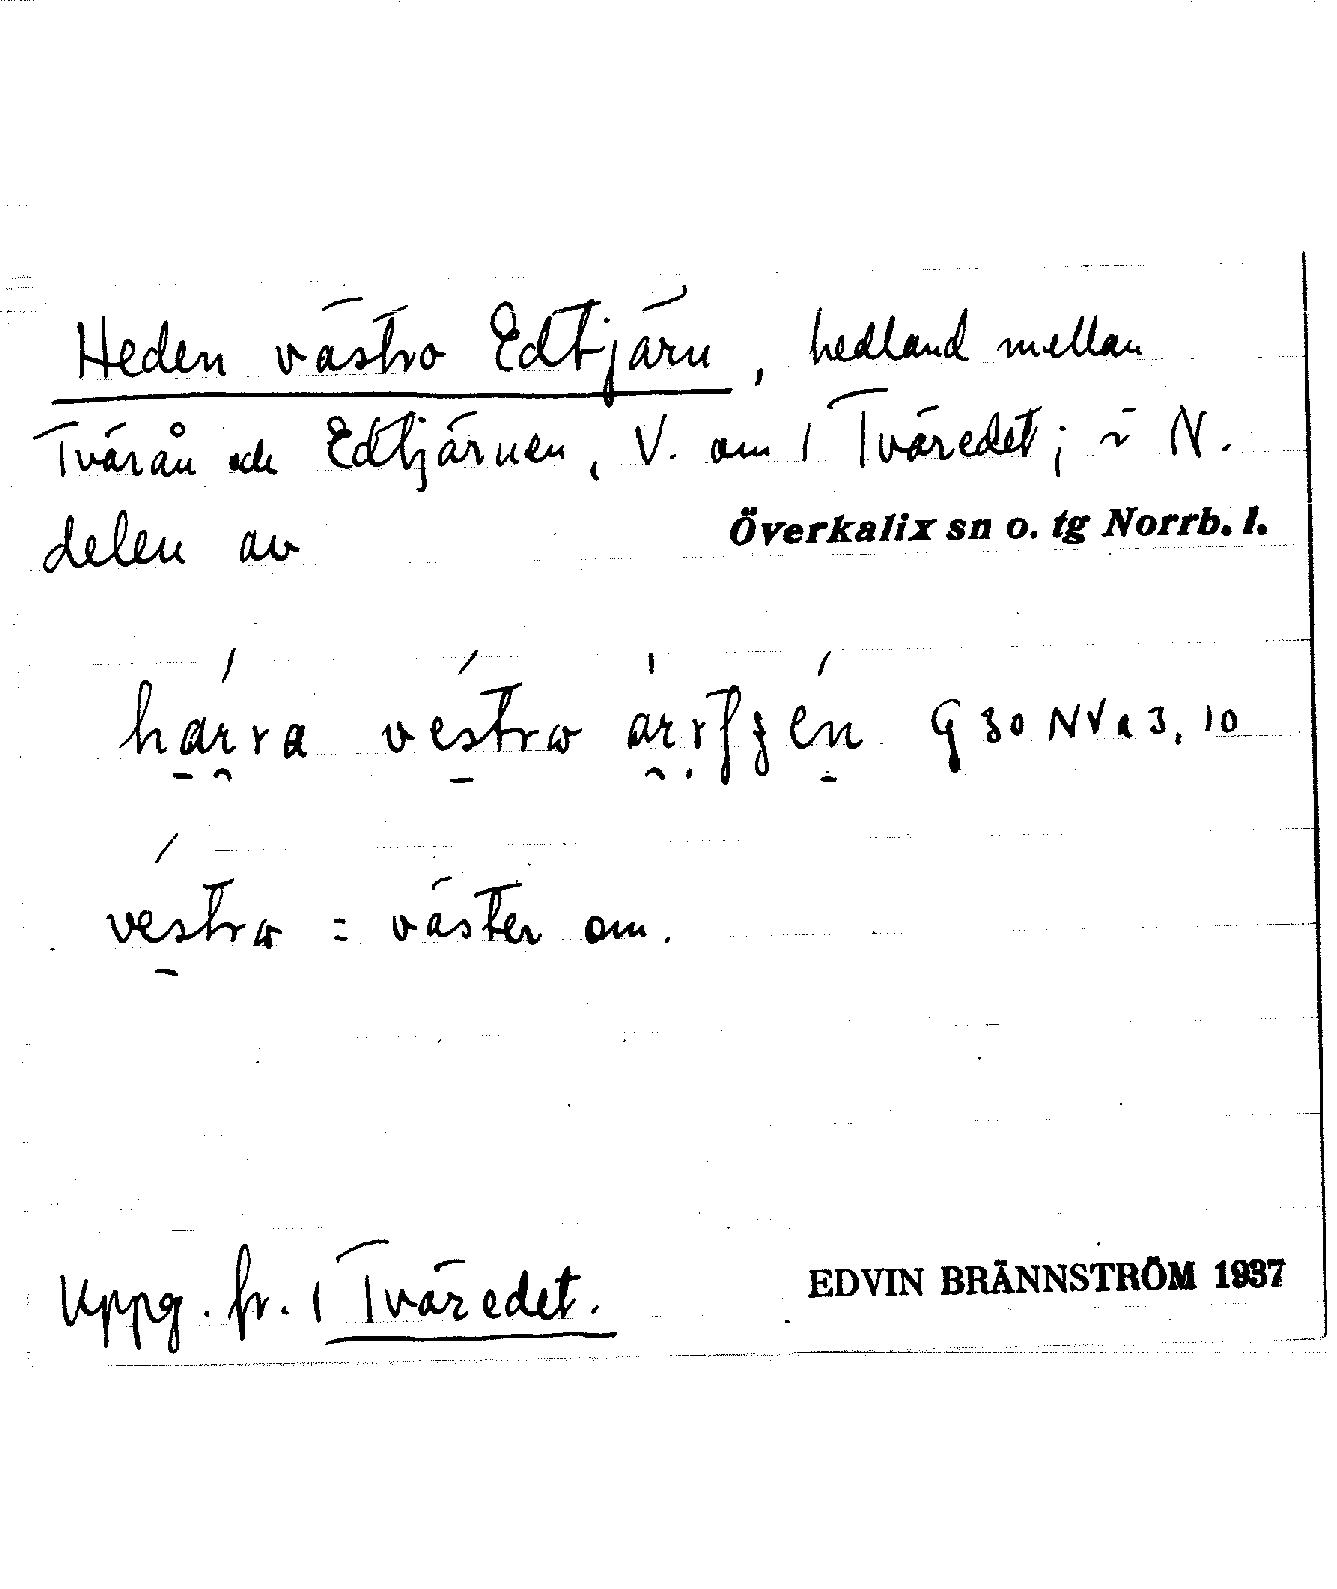 Heden västro Edtjärn, hedland mellan
Tvärån och Edtjärnen, V. om 1 Tväredet; i N.
delen av Överkalix sn o. tg Norrb. l.
véstrω = väster om.
Uppg. fr. 1 Tväredet.
EDVIN BRÄNNSTRÖM 1937